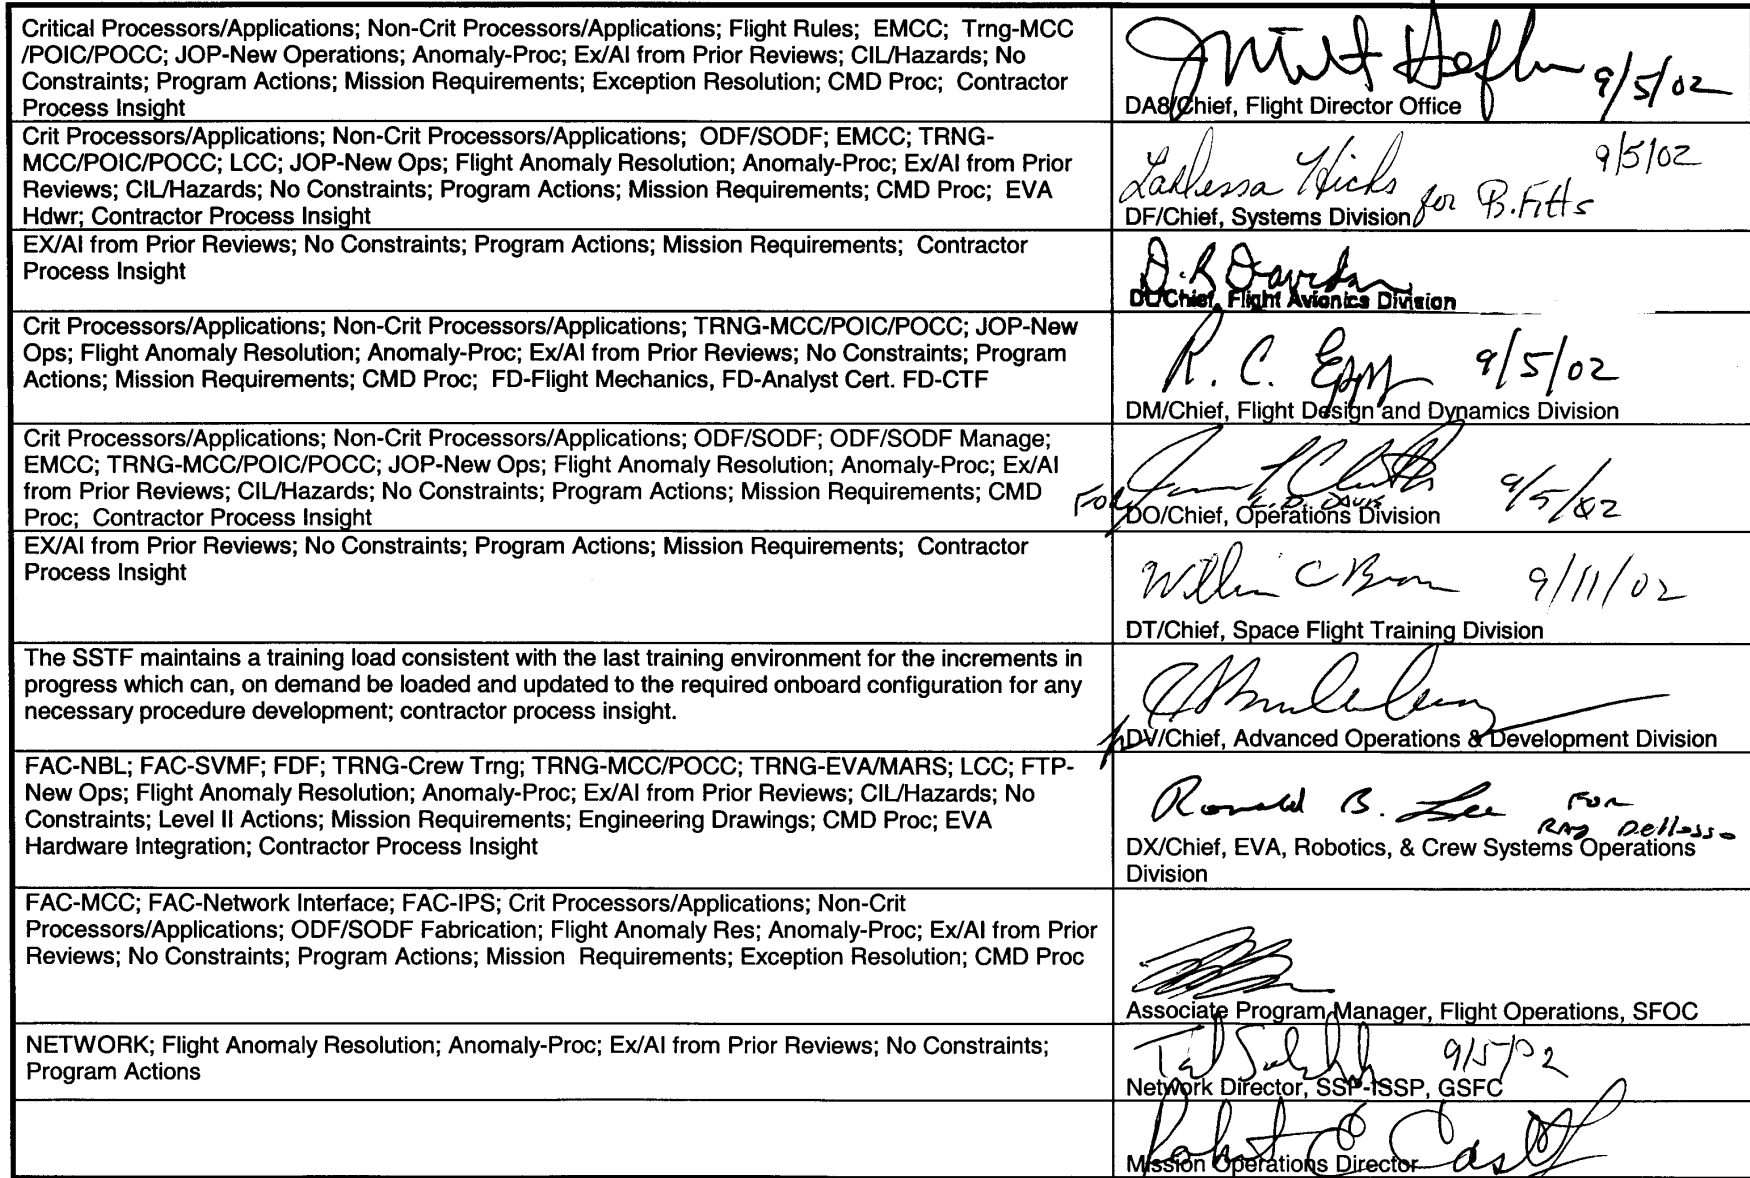 Critical Processors/Applications; Non-Crit Processors/Applications; Flight Rules; EMCC; Trng-MCC
/POIC/POCC; JOP-New Operations; Anomaly-Proc; Ex/AI from Prior Reviews; CIL/Hazards; No
Constraints; Program Actions; Mission Requirements; Exception Resolution; CMD Proc; Contractor
Process Insight
J Milt Heflin 9/5/02
DA8/Chief, Flight Director Office
Crit Processors/Applications; Non-Crit Processors/Applications; ODF/SODF; EMCC; TRNG-
MCC/POIC/POCC; LCC; JOP-New Ops; Flight Anomaly Resolution; Anomaly-Proc; Ex/AI from Prior
Reviews; CIL/Hazards; No Constraints; Program Actions; Mission Requirements; CMD Proc; EVA
Hdwr; Contractor Process Insight
9/5/02
Hicks for B. Fitts
DF/Chief, Systems Division
EX/AI from Prior Reviews; No Constraints; Program Actions; Mission Requirements; Contractor
Process Insight
D.
DL/Chief, Flight Avionics Division
Crit Processors/Applications; Non-Crit Processors/Applications; TRNG-MCC/POIC/POCC; JOP-New
Ops; Flight Anomaly Resolution; Anomaly-Proc; Ex/AI from Prior Reviews; No Constraints; Program
Actions; Mission Requirements; CMD Proc; FD-Flight Mechanics, FD-Analyst Cert. FD-CTF
R. C. 9/5/02
DM/Chief, Flight Design and Dynamics Division
Crit Processors/Applications; Non-Crit Processors/Applications; ODF/SODF; ODF/SODF Manage;
EMCC; TRNG-MCC/POIC/POCC; JOP-New Ops; Flight Anomaly Resolution; Anomaly-Proc; Ex/AI
from Prior Reviews; CIL/Hazards; No Constraints; Program Actions; Mission Requirements; CMD
Proc; Contractor Process Insight
9/5/02
FOR
DO/Chief, Operations Division
EX/AI from Prior Reviews; No Constraints; Program Actions; Mission Requirements; Contractor
Process Insight
William C 9/11/02
DT/Chief, Space Flight Training Division
The SSTF maintains a training load consistent with the last training environment for the increments in
progress which can, on demand be loaded and updated to the required onboard configuration for any
necessary procedure development; contractor process insight.
DV/Chief, Advanced Operations & Development Division
FAC-NBL; FAC-SVMF; FDF; TRNG-Crew Trng; TRNG-MCC/POCC; TRNG-EVA/MARS; LCC; FTP-
New Ops; Flight Anomaly Resolution; Anomaly-Proc; Ex/AI from Prior Reviews; CIL/Hazards; No
Constraints; Level II Actions; Mission Requirements; Engineering Drawings; CMD Proc; EVA
Hardware Integration; Contractor Process Insight
Ronald B. Lee FOR
RAY
DX/Chief, EVA, Robotics, & Crew Systems Operations
Division
FAC-MCC; FAC-Network Interface; FAC-IPS; Crit Processors/Applications; Non-Crit
Processors/Applications; ODF/SODF Fabrication; Flight Anomaly Res; Anomaly-Proc; Ex/AI from Prior
Reviews; No Constraints; Program Actions; Mission Requirements; Exception Resolution; CMD Proc
Associate Program Manager, Flight Operations, SFOC
NETWORK; Flight Anomaly Resolution; Anomaly-Proc; Ex/AI from Prior Reviews; No Constraints;
Program Actions
9/5/02
Network Director, SSP-ISSP, GSFC
Robert E Castle
Mission Operations Director